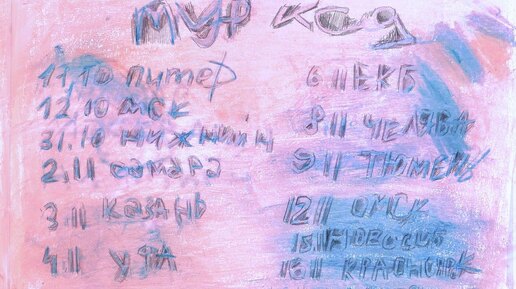 ТУР КСЯ
11.10 ПИТЕР
12.10 МСК
31.10 НИЖНИЙ Н
2.11 САМАРА
3.11 КАЗАНЬ
4.11 УФА
6 11 ЕКБ
8 11 ЧЕЛЯБА
9 11 ТЮМЕНЬ
12 11 ОМСК
15.11 НОВОСИБ
16 11 КРАСНОЯРСК